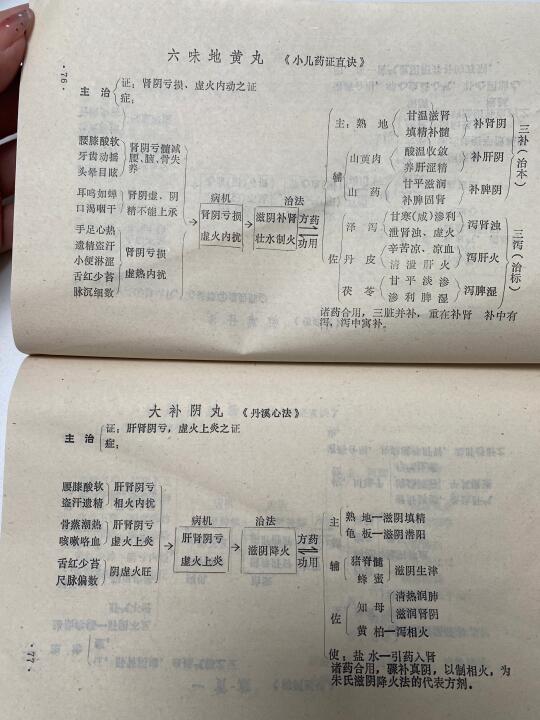 ·76·
六味地黄丸 《小儿药证直诀》
主治
证：肾阴亏损、虚火内动之证
症：
腰膝酸软
牙齿动摇
头晕目眩
肾阴亏、髓减
腰、脑、骨失
养
耳鸣如蝉
口渴咽干
肾阴虚、阴
精不能上承
手足心热
遗精盗汗
小便淋涩
舌红少苔
脉沉细数
肾阴亏损
虚热内扰
病机
肾阴亏损
虚火内扰
治法
滋阴补肾
壮水制火
方药
功用
主：熟地
甘温滋肾
填精补髓
补肾阴
辅
山萸肉
酸温收敛
养肝涩精
补肝阴
山药
甘平滋润
补脾固肾
补脾阴
三补（治本）
佐
泽泻
甘寒（咸）渗利
泄肾浊、虚火
泻肾浊
丹皮
辛苦凉、凉血
清泄肝火
泻肝火
茯苓
甘平淡渗
渗利脾湿
泻脾湿
三泻（治标）
诸药合用，三脏并补，重在补肾 补中有
泻，泻中寓补。
·77·
大补阴丸 《丹溪心法》
主治
证：肝肾阴亏，虚火上炎之证
症：
腰膝酸软
盗汗遗精
肝肾阴亏
相火内扰
骨蒸潮热
咳嗽咯血
肝肾阴亏
虚火上炎
舌红少苔
尺脉偏数
阴虚火旺
病机
肝肾阴亏
虚火上炎
治法
滋阴降火
方药
功用
主
熟地—滋阴填精
龟板—滋阴潜阳
辅
猪脊髓
蜂蜜
滋阴生津
佐
知母
清热润肺
滋润肾阴
黄柏—泻相火
使：盐水—引药入肾
诸药合用，骤补真阴，以制相火，为
朱氏滋阴降火法的代表方剂。